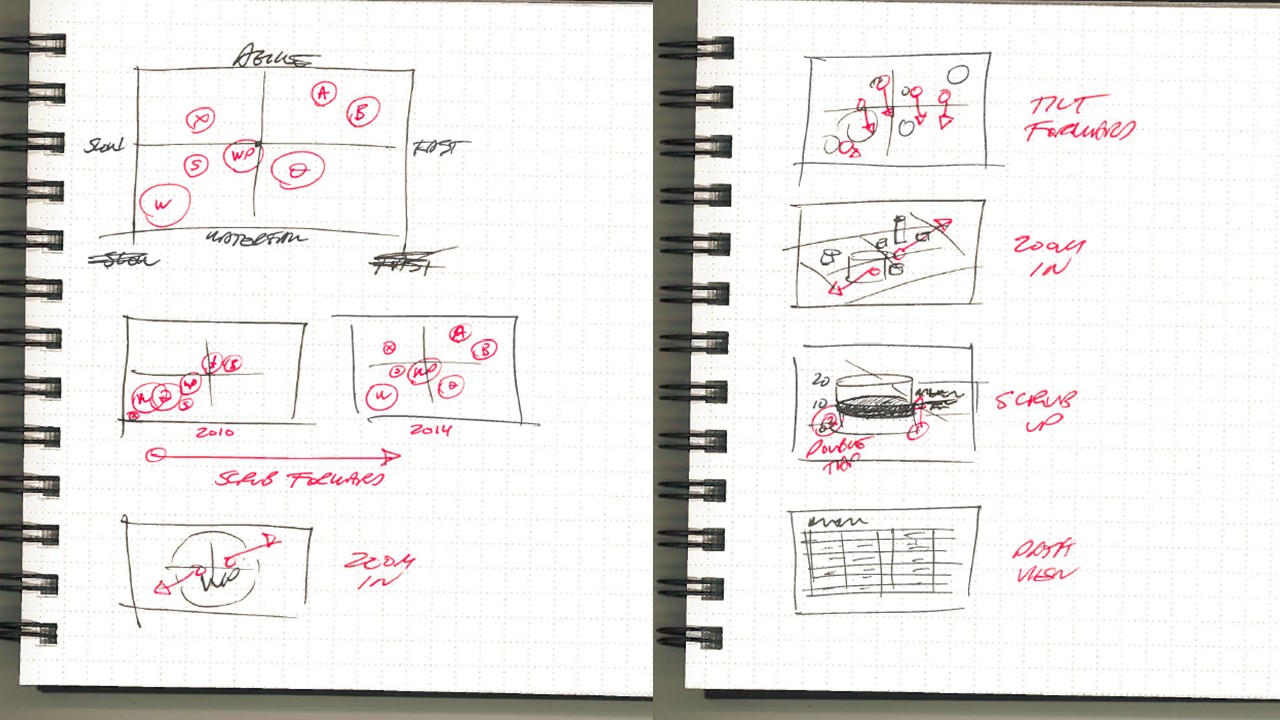 AGILE
A
X
B
SLOW
FAST
WP
S
W
WATERFALL
SLOW
FAST
X
A
B
A
B
WP
S
W
WP
W
2010
2014
SCRUB FORWARD
WP
ZOOM
IN
TILT
FORWARD
ZOOM
IN
20
10
SCRUB
UP
DOUBLE
TAP
DATA
VIEW